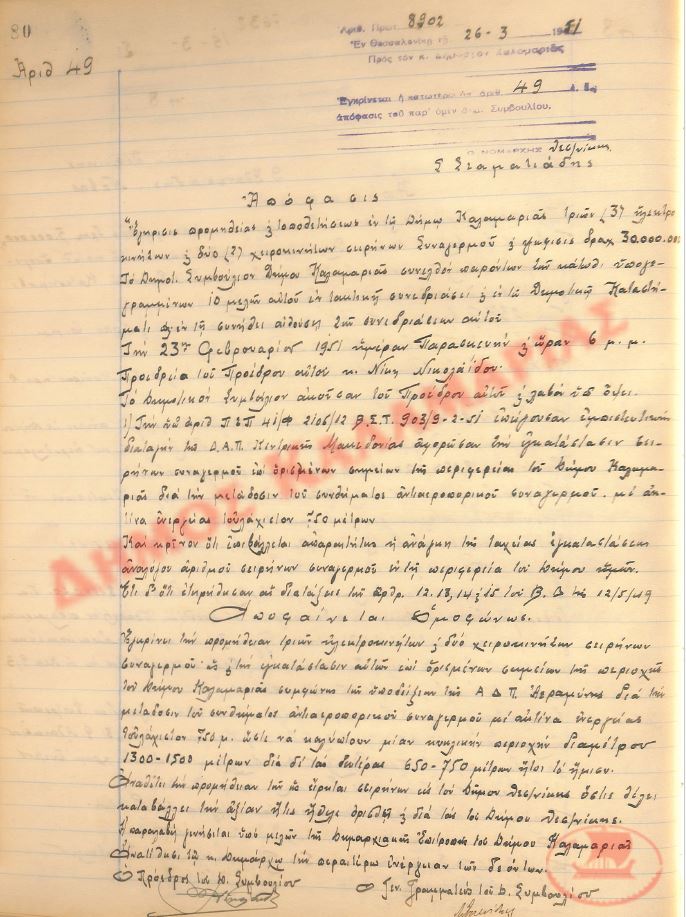 80
Ἀριθ 49
Ἀριθ. Πρωτ. 8902
Ἐν Θεσσαλονίκῃ τῇ 26-3 1951
Πρός τόν κ. Δήμαρχον Καλαμαριᾶς
Ἐγκρίνεται ἡ κατωτέρω ὑπ' ἀριθ. 49 ἐ. ἔ.
ἀπόφασις τοῦ παρ' ὑμῖν Δημ. Συμβουλίου.
Ο ΝΟΜΑΡΧΗΣ Θεσ/νίκης
Σ Σταματιάδης
Ἀπόφασις
Ἔγκρισις προμηθείας & τοποθετήσεως ἐν τῷ Δήμῳ Καλαμαριᾶς τριῶν (3) ἠλεκτρο
κινήτων & δύο (2) χειροκινήτων σειρήνων Συναγερμοῦ & ψήφισις δραχ 30.000.000
Τό Δημοτ. Συμβούλιον Δήμου Καλαμαριᾶς συνελθόν παρόντων τῶν κάτωθι ὑπογε
γραμμένων 10 μελῶν αὐτοῦ ἐν τακτικῇ συνεδριάσει & ἐν τῷ Δημοτικῷ Καταστή-
ματι & ἐν τῇ συνήθει αἰθούσῃ τῶν συνεδριάσεων αὐτοῦ
Τήν 23ην Φεβρουαρίου 1951 ἡμέραν Παρασκευήν & ὥραν 6 μ.μ.
Προεδρεία τοῦ Προέδρου αὐτοῦ κ. Νικ. Νικολαΐδου.
Τό Δημοτικόν Συμβούλιον ἀκοῦσαν τοῦ Προέδρου αὐτοῦ & λαβόν ὑπ' ὄψει.
1) Τήν ὑπ' ἀριθ Π & Π 41/Φ 2106/12 Β.Σ.Τ. 903/9-2-51 ἐπείγουσαν ἐμπιστευτικήν
διαταγήν τῆς Δ.Α.Π Κεντρικῆς Μακεδονίας ἀφορῶσαν τήν ἐγκατάστασιν σει-
ρήνων συναγερμοῦ ἐπί ὡρισμένων σημείων τῆς περιφερείας τοῦ Δήμου Καλαμα-
ριᾶς διά τήν μετάδοσιν τοῦ συνθήματος ἀντιαεροπορικοῦ συναγερμοῦ. μέ ἀκ-
τῖνα ἐνεργείας τοὐλάχιστον 750 μέτρων
Καί κρῖνον ὅτι ἐπιβάλλεται ἀπαραιτήτως ἡ ἀνάγκη τῆς ταχείας ἐγκαταστάσεως
ἀναλόγου ἀριθμοῦ σειρήνων συναγερμοῦ ἐν τῇ περιφερείᾳ τοῦ Δήμου ἡμῶν.
Ἔτι δ' ὅτι ἐτηρήθησαν αἱ διατάξεις τῶν ἄρθρ. 12. 13, 14 & 15 τοῦ Β.Δ τῆς 12/5/49
Ἀποφαίνεται Ὁμοφώνως.
Ἐγκρίνει τήν προμήθειαν τριῶν ἠλεκτροκινήτων & δύο χειροκινήτων σειρήνων
συναγερμοῦ ὡς & τήν ἐγκατάστασιν αὐτῶν ἐπί ὡρισμένων σημείων τῆς περιοχῆς
τοῦ Δήμου Καλαμαριᾶς συμφώνως τῇ ὑποδείξει τῆς Α Δ Π Ἀεραμύνης διά τήν
μετάδοσιν τοῦ συνθήματος ἀντιαεροπορικοῦ συναγερμοῦ μέ ἀκτῖνα ἐνεργείας
τοὐλάχιστον 750 μ. ὥστε νά καλύπτουν μίαν κυκλικήν περιοχήν διαμέτρου
1300-1500 μέτρων διά δέ τάς δευτέρας 650-750 μέτρων ἤτοι τό ἥμισυ.
Ἀναθέτει τήν προμήθειαν τῶν ὡς εἴρηται σειρήνων εἰς τόν Δῆμον Θεσ/νίκης ὅστις θέλει
καταβάλλει τήν ἀξίαν ἥτις ἤθελε ὁρισθῆ & διά τάς τοῦ Δήμου Θεσ/νίκης.
Ἡ παραλαβή γενήσεται ὑπό μελῶν τῆς Δημαρχιακῆς Ἐπιτροπῆς τοῦ Δήμου Καλαμαριᾶς
Ἀνατίθησι τῷ κ. Δημάρχῳ τήν περαιτέρω ἐνέργειαν τῶν δεόντων.
Ὁ Πρόεδρος τοῦ Δ. Συμβουλίου Ὁ Γεν. Γραμματεύς τοῦ Δ. Συμβουλίου
ΔΗΜΟΣ ΚΑΛΑΜΑΡΙΑΣ